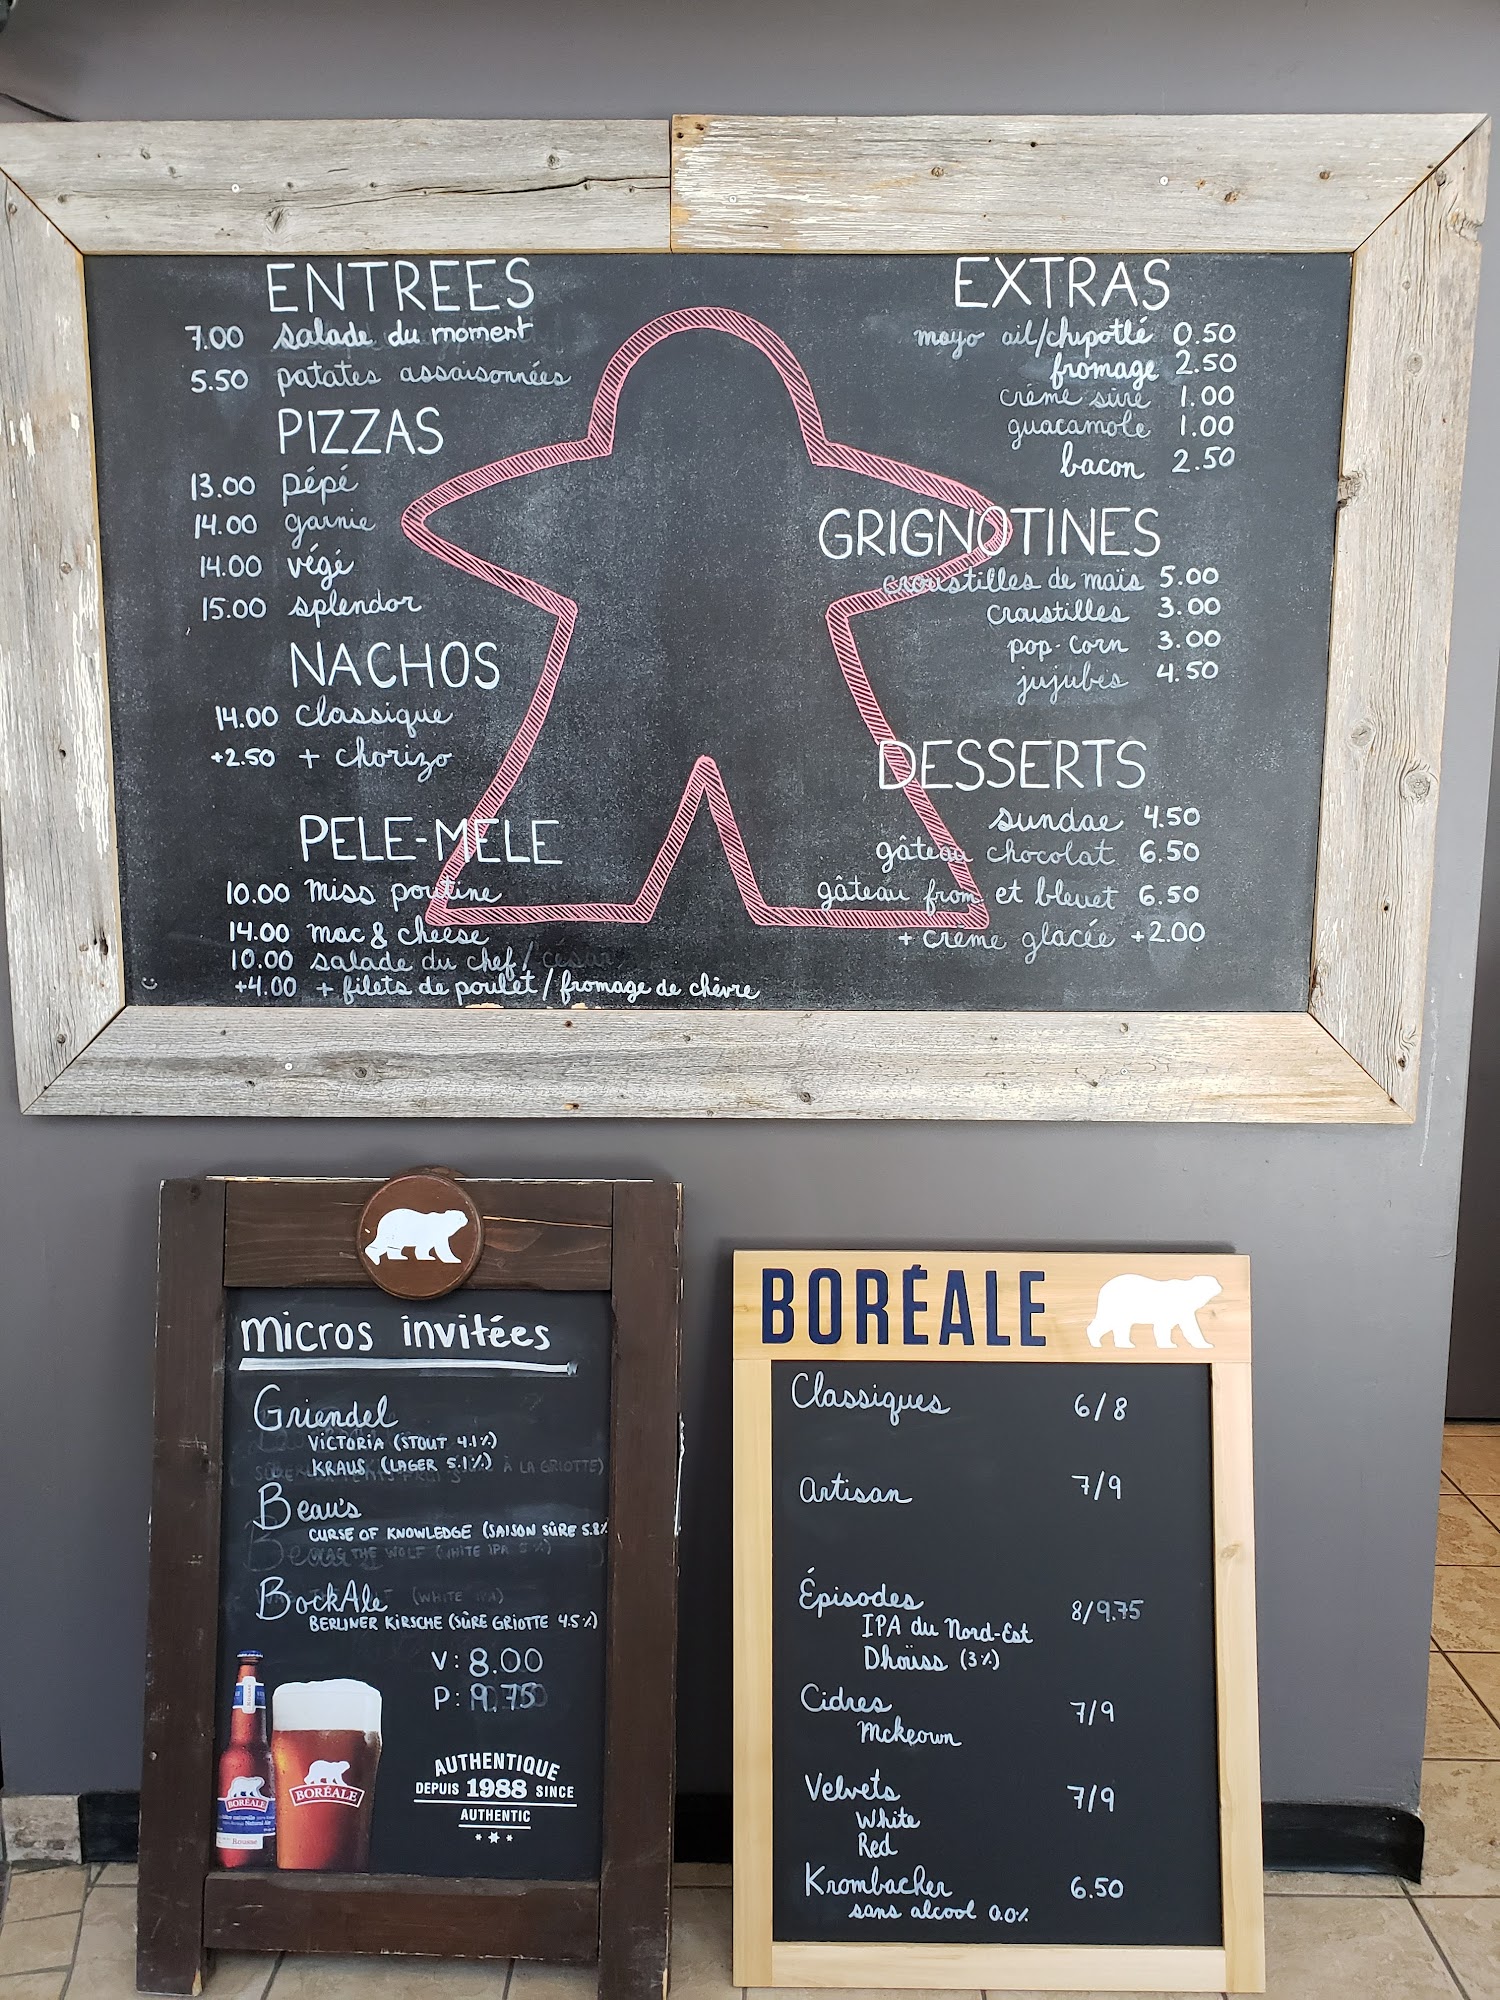 ENTREES
7.00 salade du moment
5.50 patates assaisonnées
PIZZAS
13.00 pépé
14.00 garnie
14.00 végé
15.00 splendor
NACHOS
14.00 classique
+2.50 + chorizo
PELE-MELE
10.00 miss poutine
14.00 mac & cheese
10.00 salade du chef/césar
+4.00 + filets de poulet/fromage de chèvre
EXTRAS
mayo ail/chipotlé 0.50
fromage 2.50
crème sûre 1.00
guacamole 1.00
bacon 2.50
GRIGNOTINES
croustilles de maïs 5.00
croustilles 3.00
pop-corn 3.00
jujubes 4.50
DESSERTS
sundae 4.50
gâteau chocolat 6.50
gâteau from et bleuet 6.50
+ crème glacée +2.00
micros invitées
Griendel
VICTORIA (STOUT 4.1%)
KRAUS (LAGER 5.1%)
À LA GRIOTTE)
Beau's
CURSE OF KNOWLEDGE (SAISON SÛRE 5.8%
THE WOLF (WHITE IPA 5%)
BockAle (WHITE IPA)
BERLINER KIRSCHE (SÛRE GRIOTTE 4.5%)
V: 8.00
P: 9.75
BORÉALE
Rousse
BORÉALE
AUTHENTIQUE
DEPUIS 1988 SINCE
AUTHENTIC
BORÉALE
Classiques 6/8
Artisan 7/9
Épisodes 8/9.75
IPA du Nord-Est
Dhöuss (3%)
Cidres 7/9
McKeown
Velvets 7/9
White
Red
Krombacher 6.50
sans alcool 0.0%